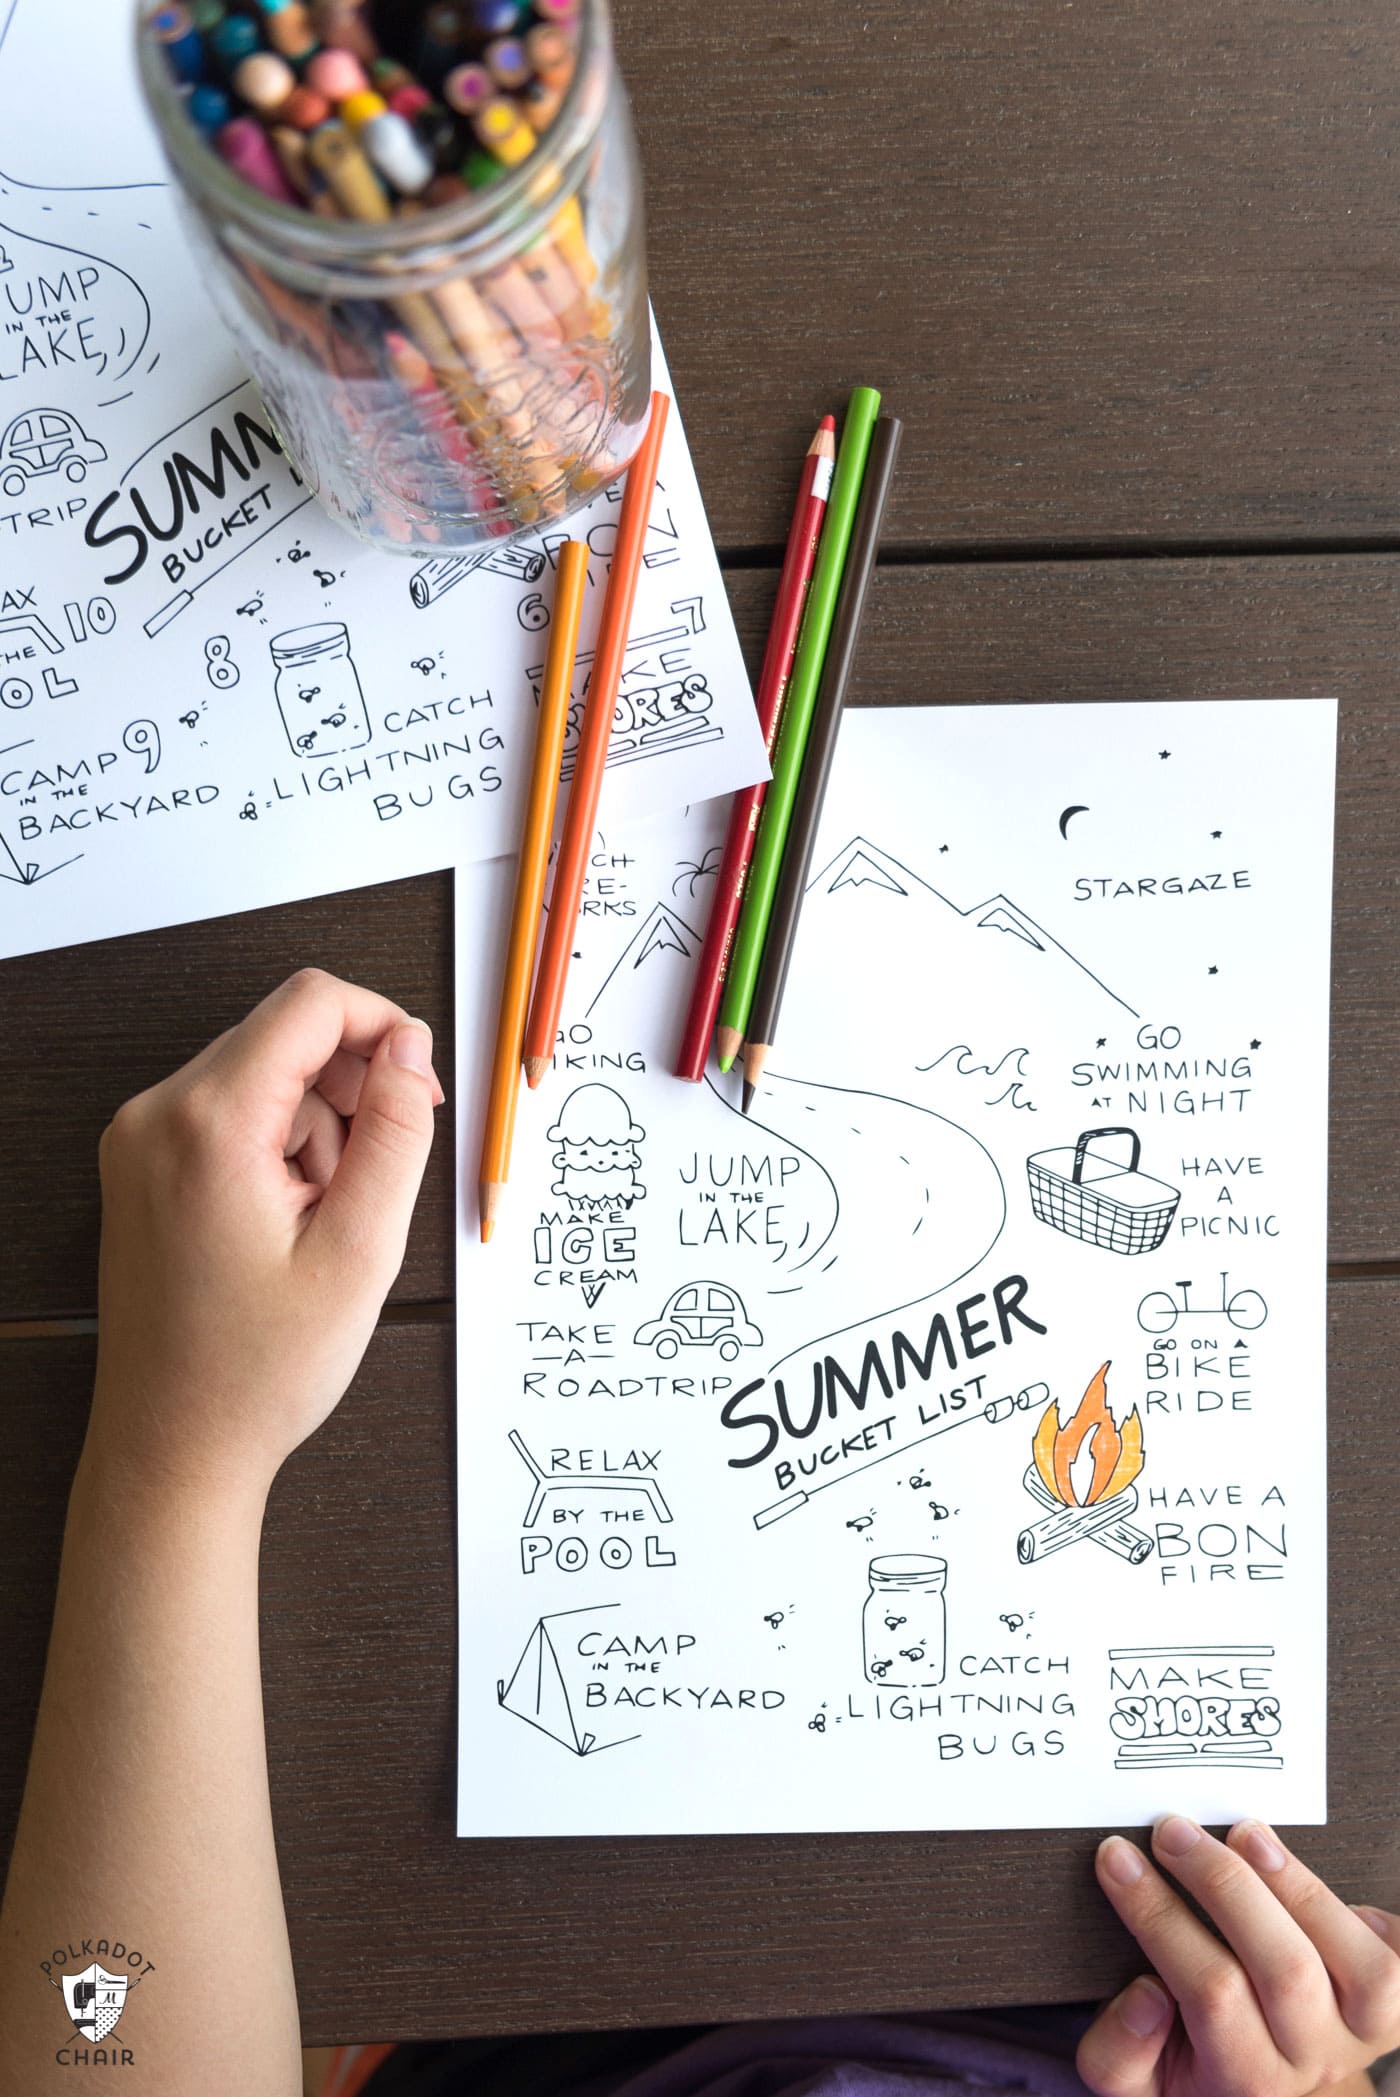 UMP
IN THE
AKE
TRIP
SUMM
BUCKET
AX
10
THE
OL
8
6
7
KE
ORES
CAMP 9
IN THE
BACKYARD
CATCH
LIGHTNING
BUGS
CH
RE-
RKS
STARGAZE
GO
IKING
GO
SWIMMING
AT NIGHT
MAKE
ICE
CREAM
JUMP
IN THE
LAKE
HAVE
A
PICNIC
TAKE
-A-
ROADTRIP
SUMMER
BUCKET LIST
GO ON A
BIKE
RIDE
RELAX
BY THE
POOL
HAVE A
BON
FIRE
CAMP
IN THE
BACKYARD
CATCH
LIGHTNING
BUGS
MAKE
SMORES
POLKADOT
M
CHAIR